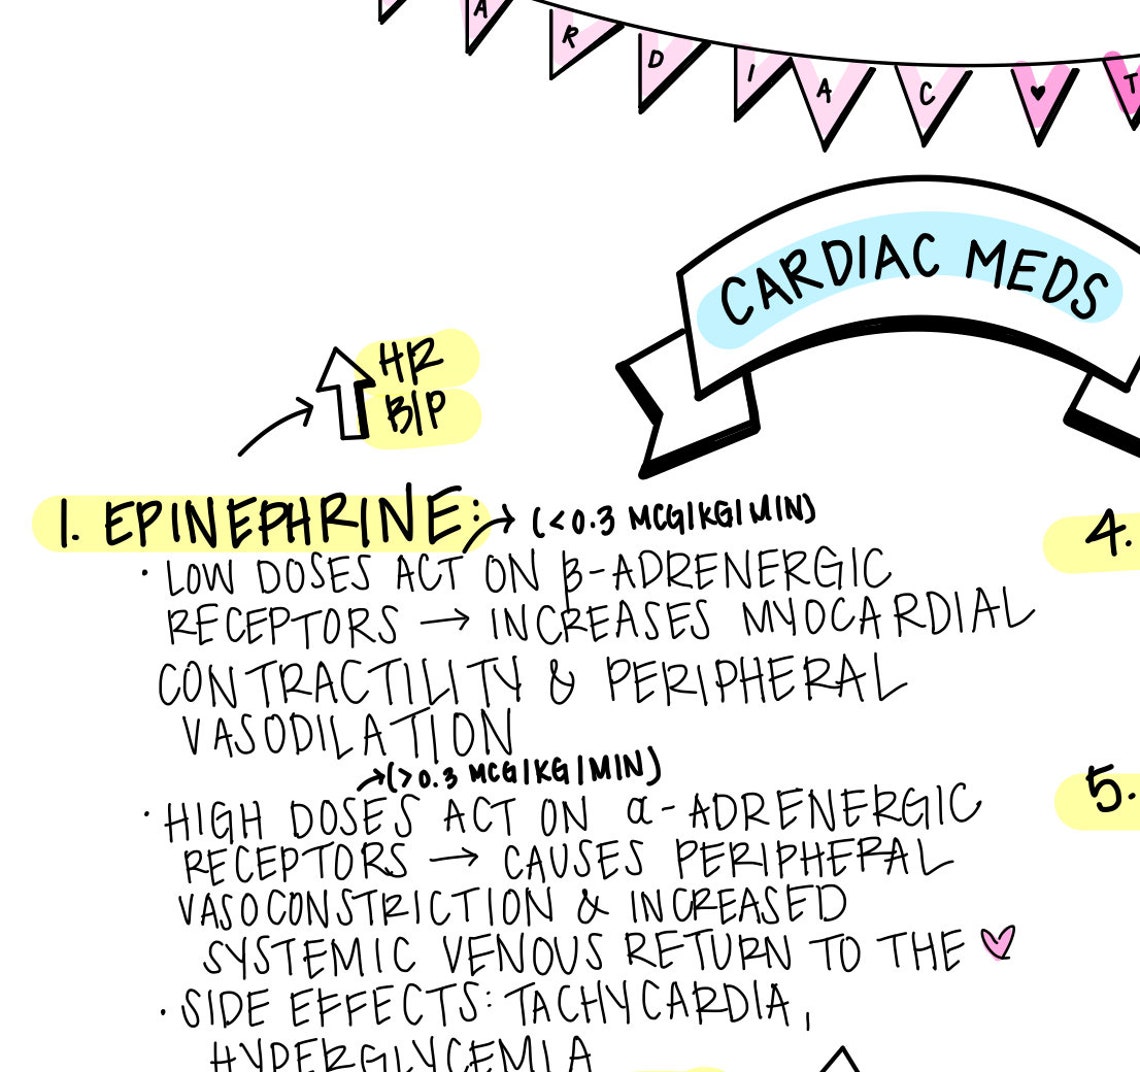 A R D I A C ♥ T
CARDIAC MEDS
HR
B/P
1. EPINEPHRINE: → (<0.3 MCG/KG/MIN)
4.
· LOW DOSES ACT ON β-ADRENERGIC
RECEPTORS → INCREASES MYOCARDIAL
CONTRACTILITY & PERIPHERAL
VASODILATION
→(>0.3 MCG/KG/MIN)
5.
· HIGH DOSES ACT ON α-ADRENERGIC
RECEPTORS → CAUSES PERIPHERAL
VASOCONSTRICTION & INCREASED
SYSTEMIC VENOUS RETURN TO THE ♥
· SIDE EFFECTS: TACHYCARDIA,
HYPERGLYCEMIA